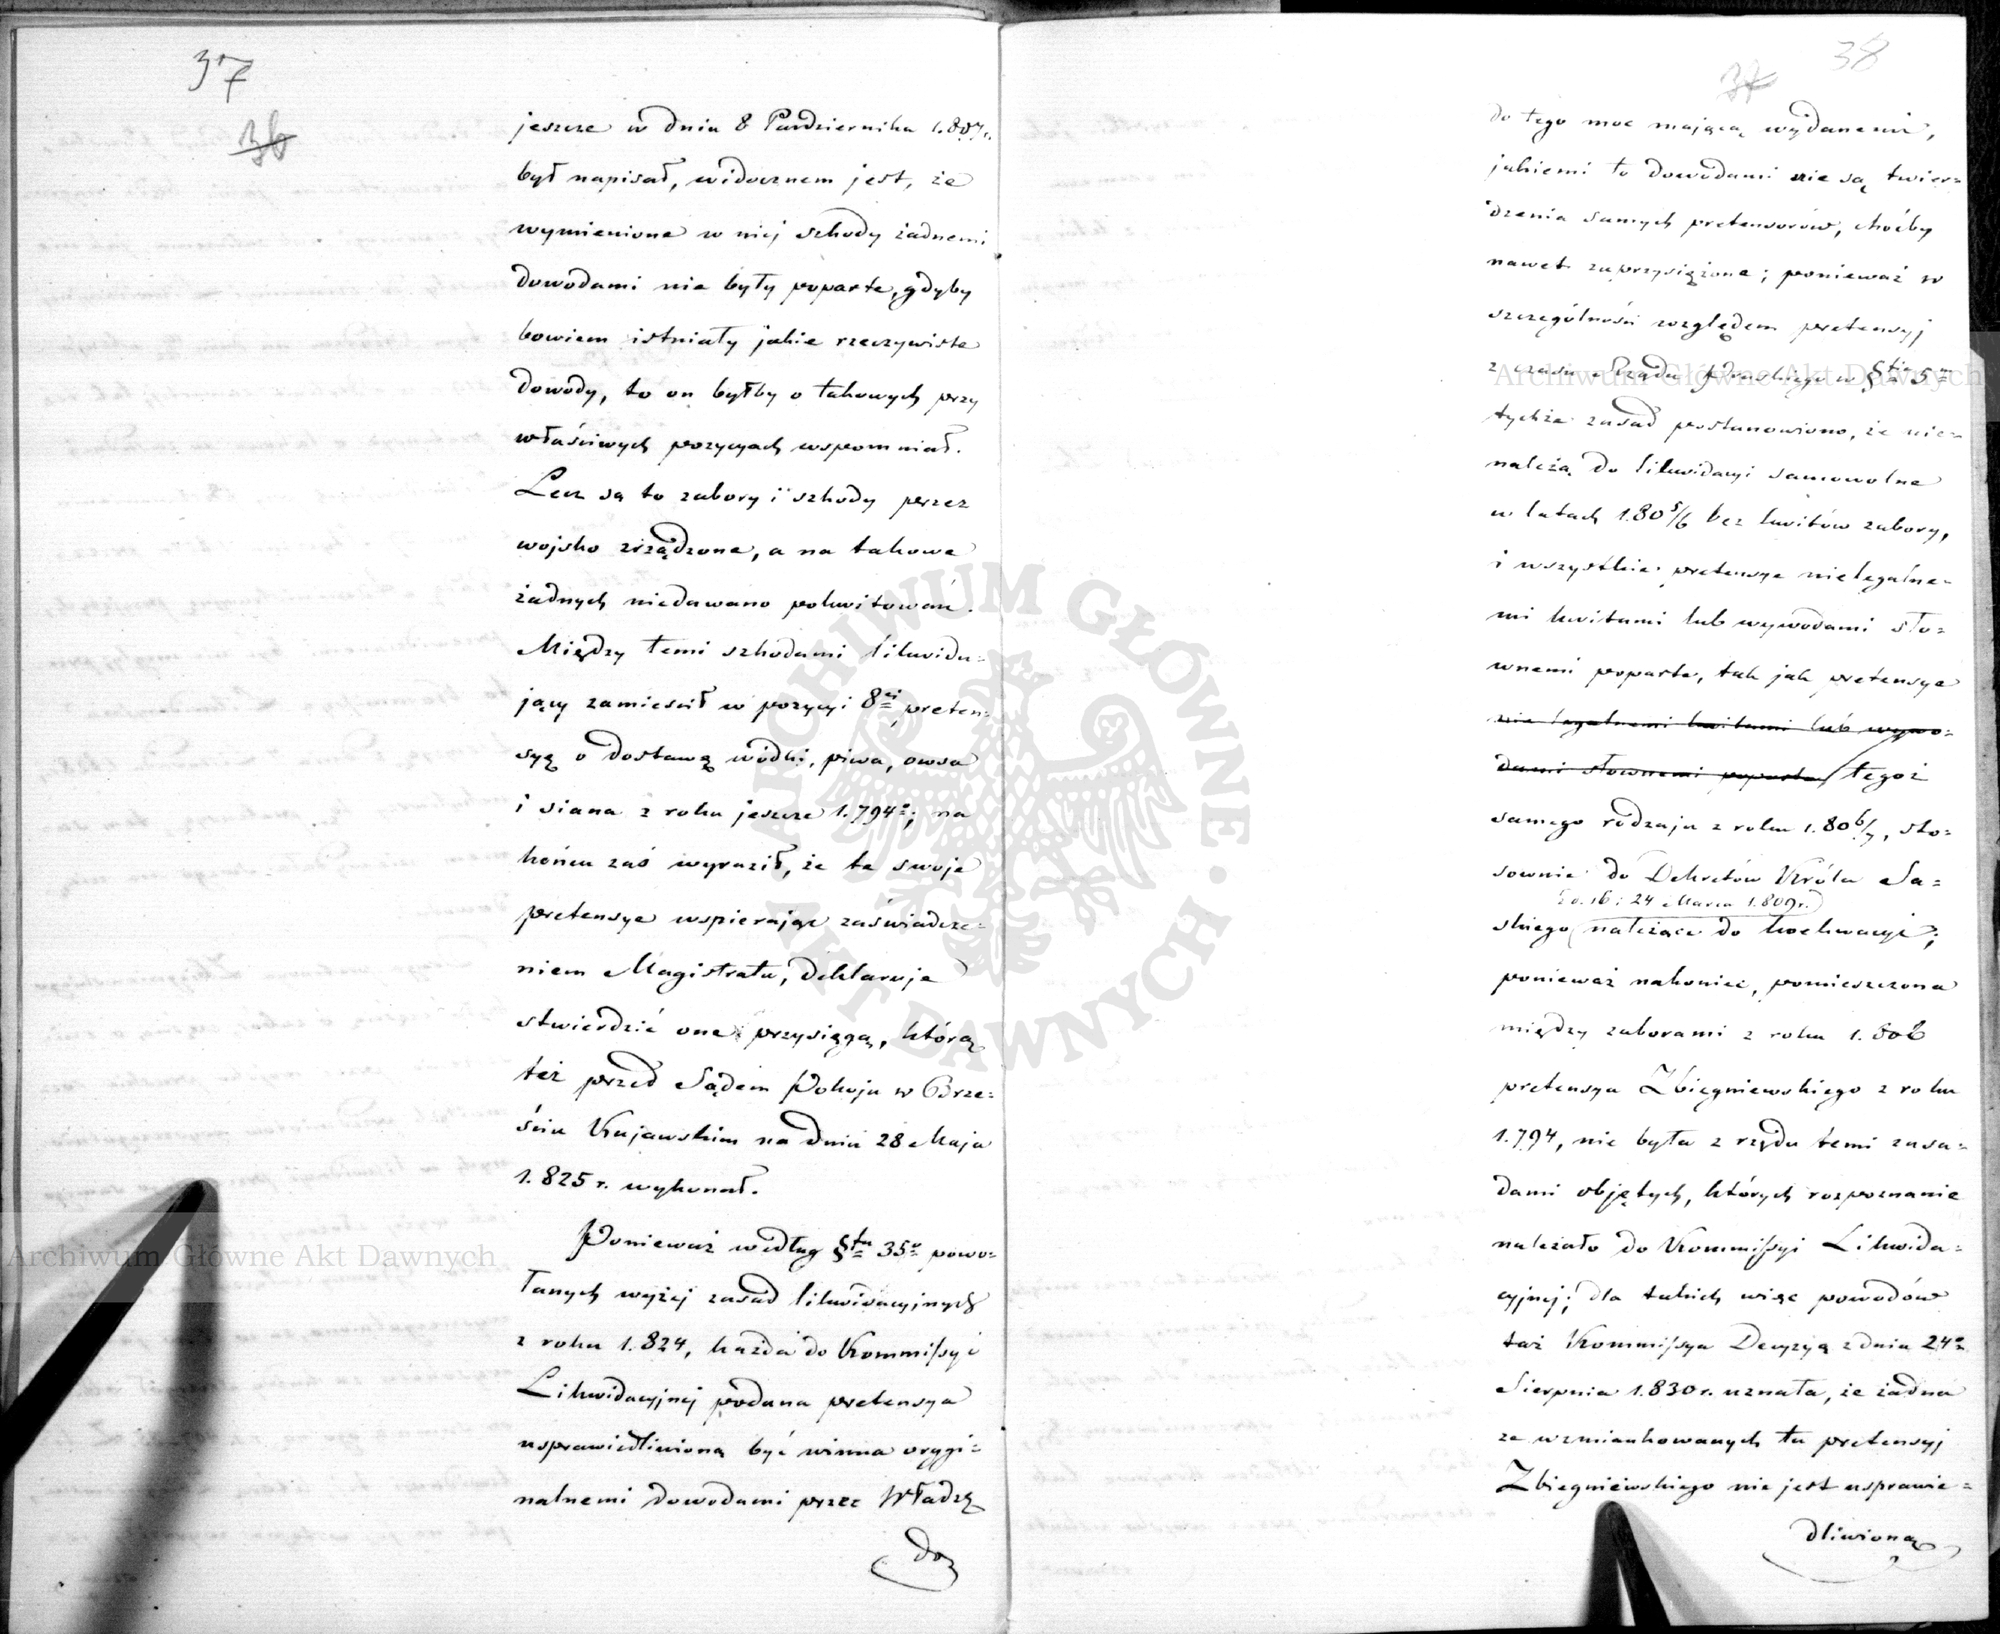 37
36
jeszcze w dniu 8 Października 1.807 r.
był napisał, widocznem jest, że
wymienione w niej szkody żadnemi
dowodami nie były poparte, gdyby
bowiem istniały jakie rzeczywiste
dowody, to on byłby o takowych przy
właściwych pozycyach wspomniał.
Lecz są to zabory i szkody przez
wojsko zrządzone, a na takowe
żadnych niedawano pokwitowań.
Między temi szkodami likwidu=
jący zamieścił w pozycyi 8ei preten=
syę o dostawę wódki, piwa, owsa
i siana z roku jeszcze 1.794o; na
końcu zaś wyraził, że te swoje
pretensye wspierając zaświadcze=
niem Magistratu, deklaruje
stwierdzić one przysięgą, którą
też przed Sądem Pokoju w Brze=
ściu Kujawskim na dniu 28 Maja
1.825 r. wykonał.
Ponieważ według §tu 35o powo=
łanych wyżej zasad likwidacyjnych
z roku 1.824, każda do Kommissyi
Likwidacyjnej podana pretensya
usprawiedliwioną być winna orygi=
nalnemi dowodami przez Władzę
do
38
37
do tego moc mającą wydanemi,
jakiemi to dowodami nie są twier=
dzenia samych pretensorów, choćby
nawet zaprzysiężone; ponieważ w
szczególności względem pretensyj
z czasu Rządu Pruskiego w §tie 5m
tychże zasad postanowiono, że nie=
należą do likwidacyi samowolne
w latach 1.805/6 bez kwitów zabory,
i wszystkie pretensye nielegalne=
mi kwitami lub wywodami sło=
wnemi poparte, tak jak pretensye
nie legalnemi kwitami lub wywo=
dami słownemi poparte/ tegoż
samego rodzaju z roku 1.806/7, sto=
sownie do Dekretów Króla Sa=
z d. 16 i 24 Marca 1.809 r.
skiego należące do
ponieważ nakoniec, pomieszczona
między zaborami z roku 1.806
pretensya Zbiegniewskiego z roku
1.794, nie była z rzędu temi zasa=
dami objętych, których rozpoznanie
należało do Kommissyi Likwida=
cyjnej; dla takich więc powodów
taż Kommissya Decyzyą z dnia 24o
Sierpnia 1.830 r. uznała, że żadna
ze wzmiankowanych tu pretensyj
Zbiegniewskiego nie jest usprawie=
dliwioną
ARCHIWUM GŁÓWNE · AKT DAWNYCH ·
Archiwum Główne Akt Dawnych
Archiwum Główne Akt Dawnych